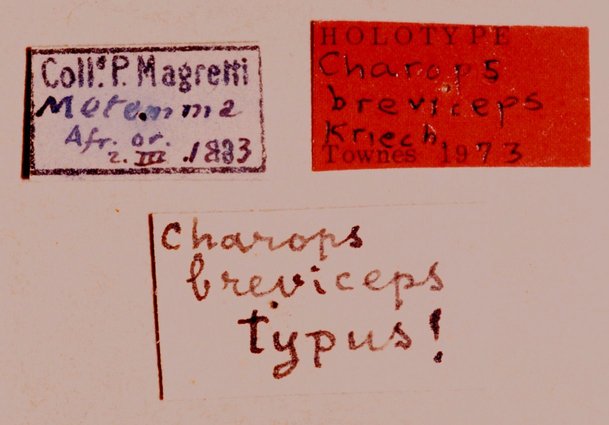 Coll.e P. Magretti
Metemma
Afr. or.
2. III .1883
HOLOTYPE
Charops
breviceps
Kriech.
Townes 1973
Charops
breviceps
typus!